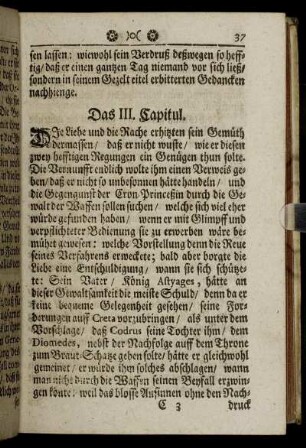 37
sen lassen: wiewohl sein Verdruß deßwegen so heff-
tig/ daß er einen gantzen Tag niemand vor sich ließ/
sondern in seinem Gezelt eitel erbitterten Gedancken
nachhienge.
Das III. Capitul.
DIe Liebe und die Rache erhitzten sein Gemüth
dermassen / daß er nicht wuste/ wie er diesen
zwey hefftigen Regungen ein Genügen thun solte.
Die Vernunfft endlich wolte ihm einen Verweis ge-
ben/ daß er nicht so unbesonnen hätte handeln/ und
die Gegengunst der Cron Princeßin durch die Ge-
walt der Waffen sollen suchen/ welche sich viel eher
würde gefunden haben/ wenn er mit Glimpff und
verpflichteter Bedienung sie zu erwerben wäre be-
mühet gewesen: welche Vorstellung denn die Reue
seines Verfahrens erweckete; bald aber borgte die
Liebe eine Entschuldigung/ wann sie sich schütze-
te: Sein Vater/ König Astyages, hätte an
dieser Gewaltsamkeit die meiste Schuld/ denn da er
eine bequeme Gelegenheit gesehen / seine For-
derungen auff Creta vorzubringen/ als unter dem
Vorschlage/ daß Codrus seine Tochter ihm/ dem
Diomedes, nebst der Nachfolge auff dem Throne
zum Braut-Schatze geben solte/ hätte er gleichwohl
gemeinet/ er würde ihm solches abschlagen/ wann
man nicht durch die Waffen seinen Beyfall erzwin-
gen könte: weil das blosse Ansinnen ohne den Nach-
C 3 druck